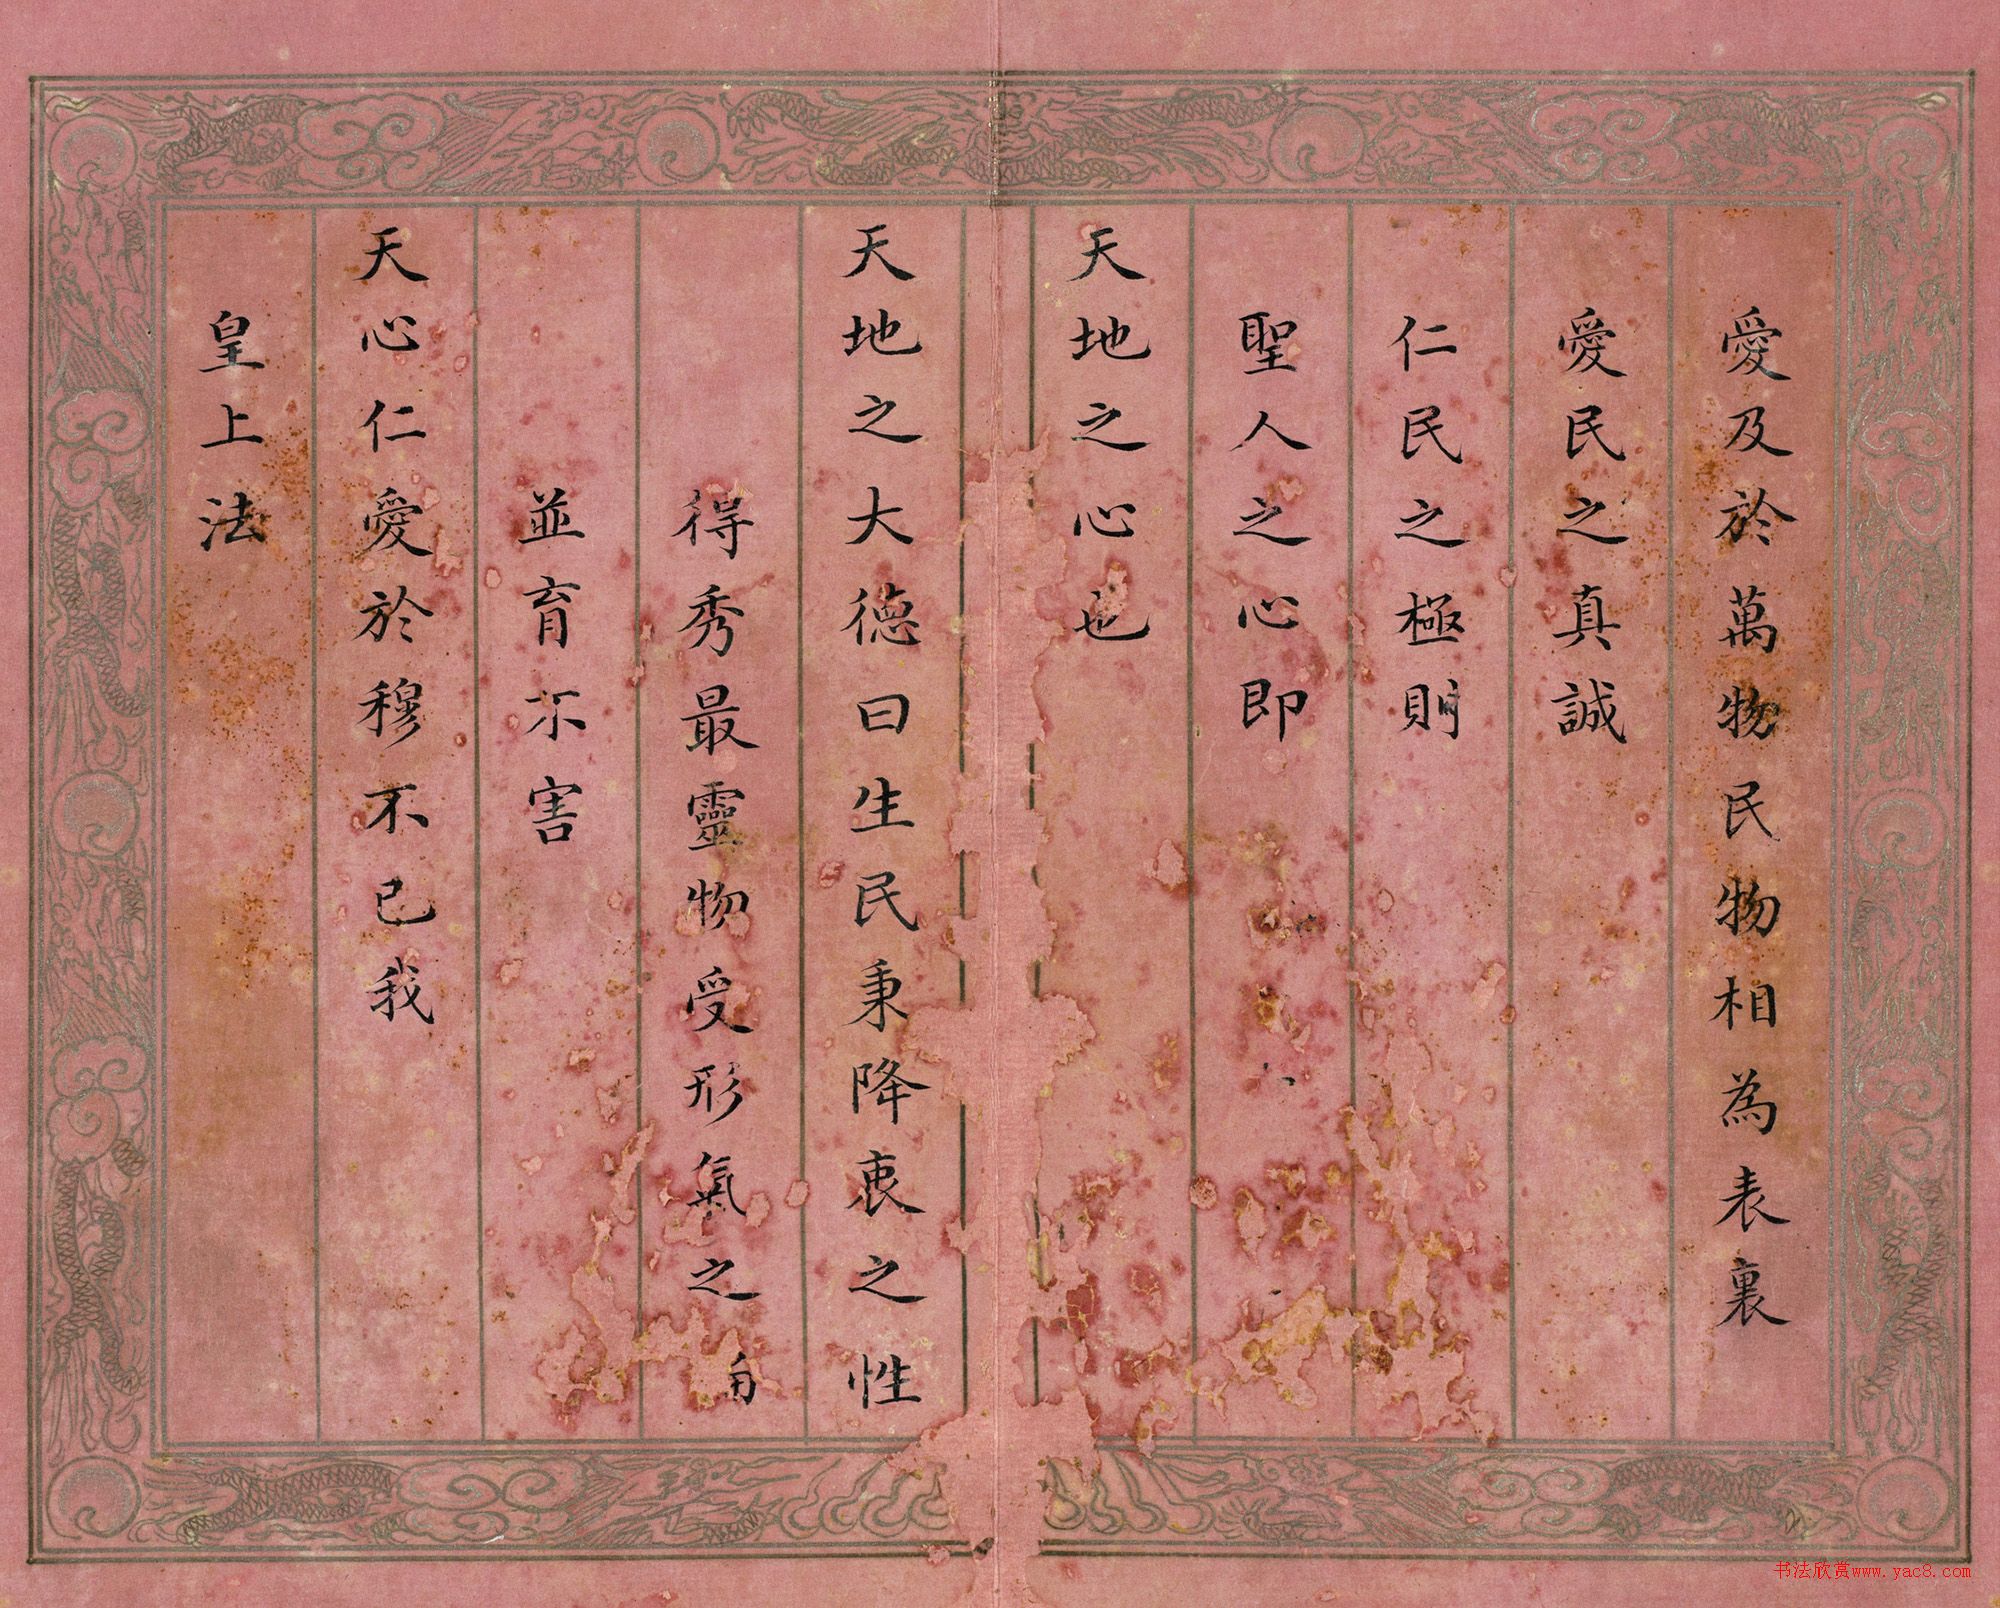 愛及於萬物民物相為表裏
愛民之真誠
仁民之極則
聖人之心即
天地之心也
天地之大德曰生民秉降衷之性
得秀最靈物受形氣之
並育不害
天心仁愛於穆不已我
皇上法
书法欣赏www.yac8.com